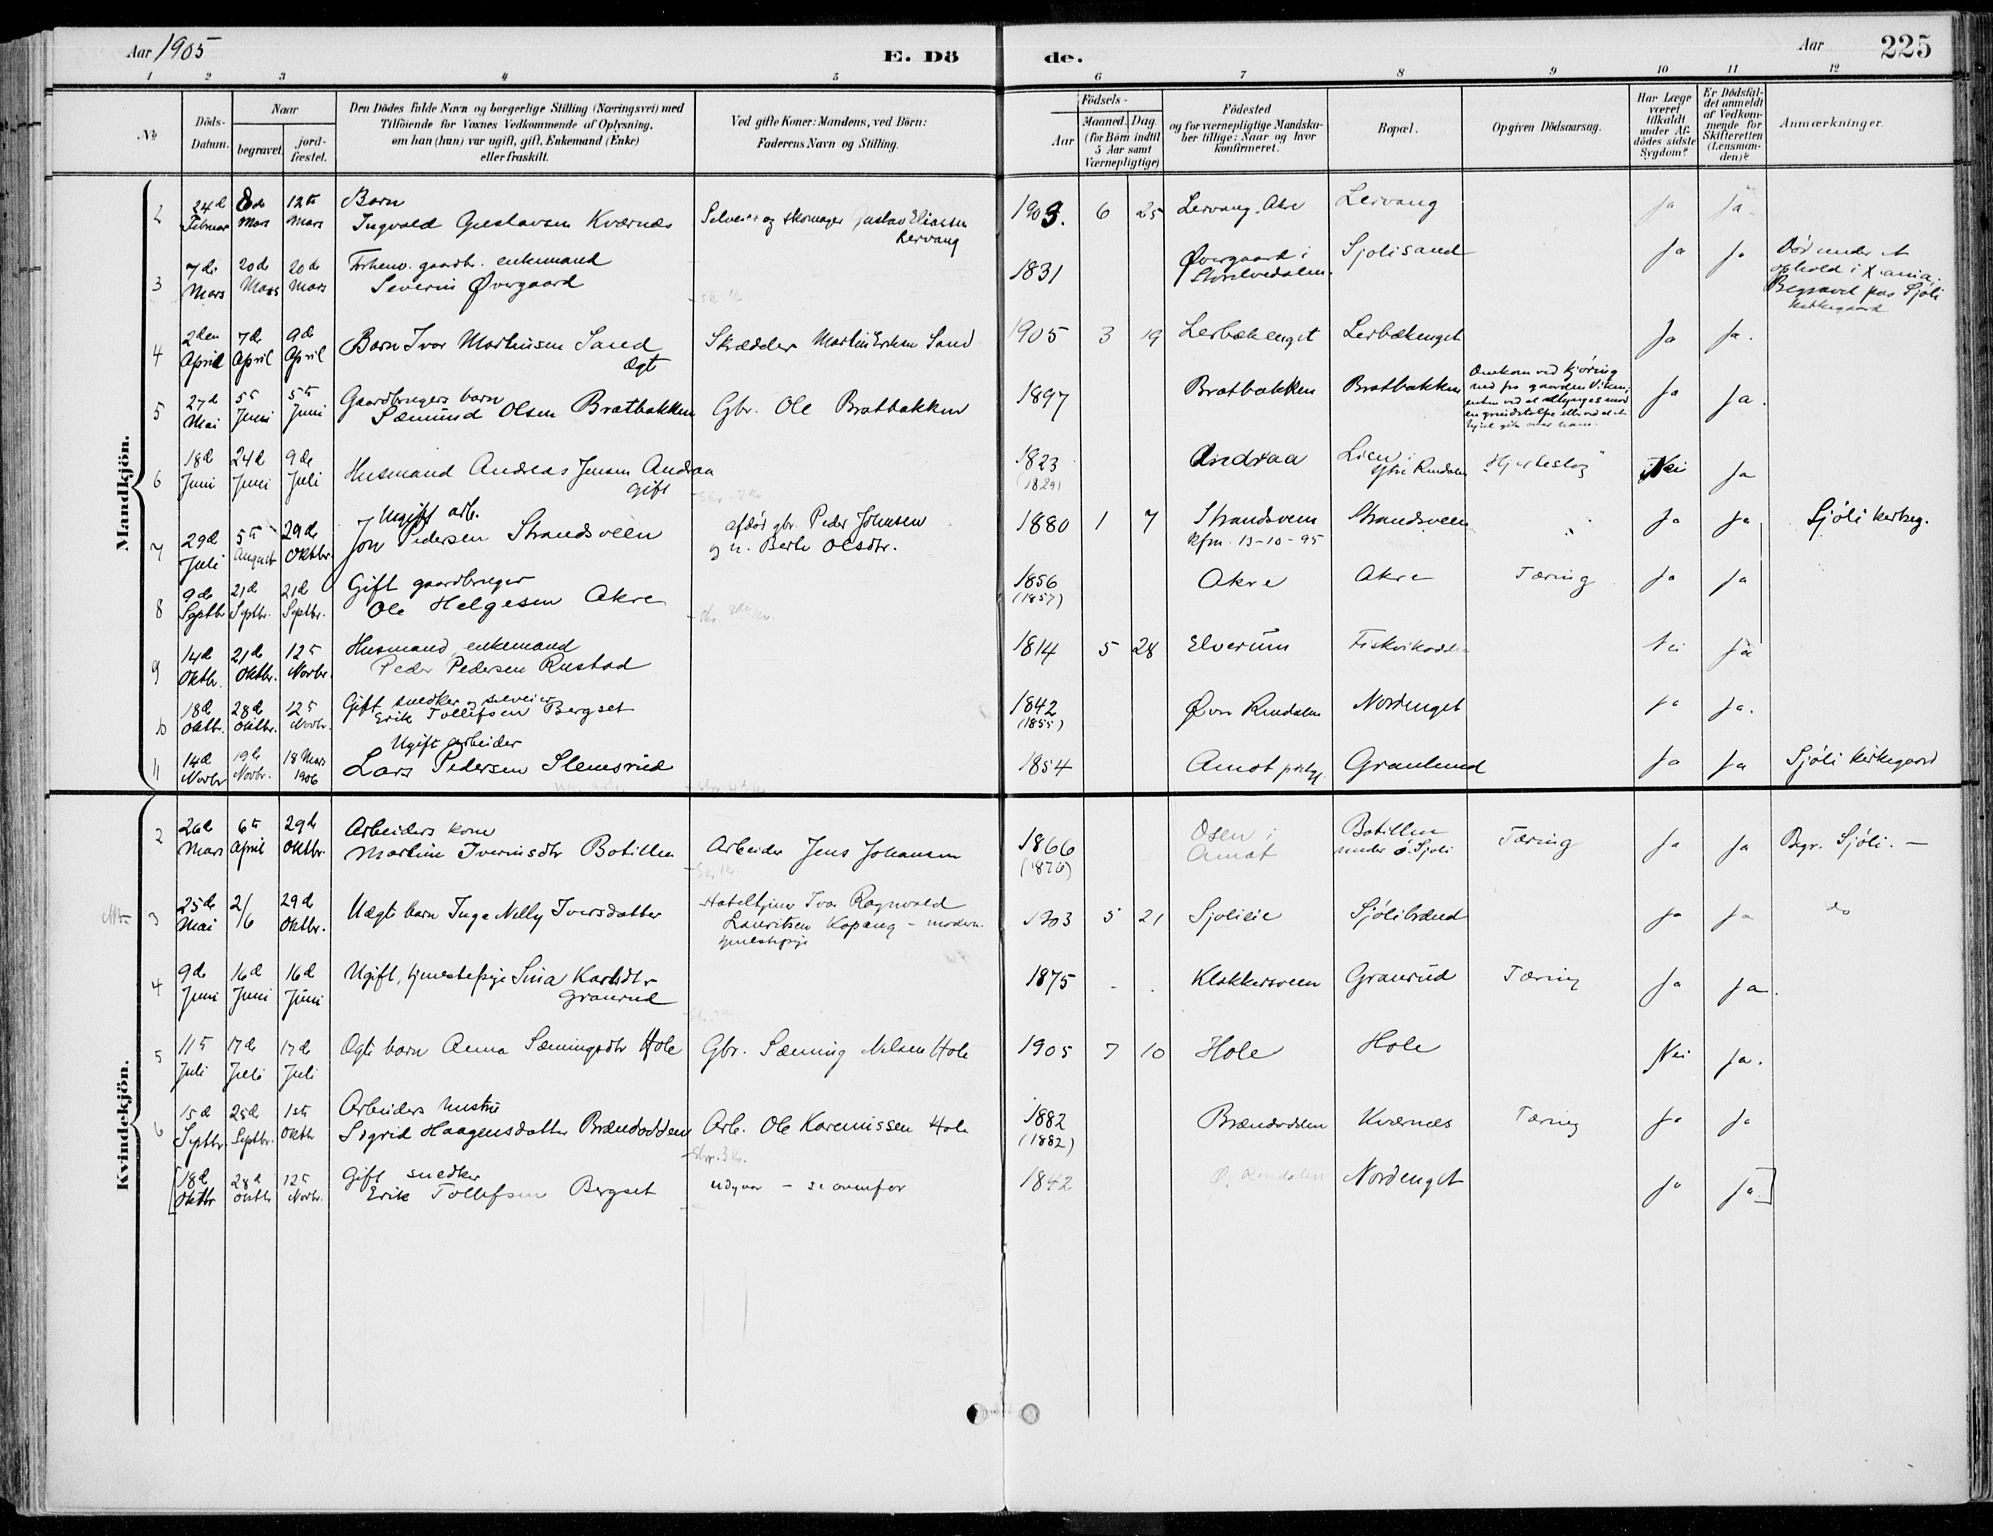 Aar 1905
E. Dö
de.
Aar
225
1 2 3 4 5 6 7 8 9 10 11 12
No
Döds-Datum.
Naar
begravet.
jord-fæstet.
Den Dödes fulde Navn og borgerlige Stilling (Næringsvei) med
Tilföiende for Voxnes Vedkommende af Oplysning,
om han (hun) var ugift, gift, Enkemand (Enke)
eller fraskilt.
Ved gifte Koner: Mandens, ved Börn:
Faderens Navn og Stilling.
Födsels-
Aar
Maaned. Dag.
(for Börn indtil
5 Aar samt
Værnepligtige)
Födested
og for værnepligtige Mandska-
ber tillige: Naar og hvor
konfirmeret.
Bopæl.
Opgiven Dödsaarsag.
Har Læge
været
tilkaldt
under Af-
dödes sidste
Sygdom?
Er Dödsfal-
det anmeldt
af Vedkom-
mende for
Skifteretten
(Lensman-
den)?
Anmærkninger.
Mandkjön.
2 24d Februar 8de Mars 12te Mars Barn
Ingvald Gustavsen Kværnæs Selveier og skomager Gustav Eliassen Lervang 1903. 6 25 Lervang, Akre Lervang Ja Ja.
3 7de Mars 20de Mars 20de Mars Forhenv. gaardbr. enkemand
Severin Øvergaard 1831 Øvergaard i Storelvedalen Sjølisand Ja Ja Død under et
ophold i X.ania.
Begravet paa Sjøli
kirkegaard
4 2den April 7de April 9de April Barn Ivar Martinsen Sand
ægt Skrædder Martin Eriksen Sand 1905 3 19 Lerbækenget Lerbækenget Ja Ja.
5 27d Mai 5te Juni 5te Juni Gaardbrugers barn
Sæmund Olsen Bratbakken Gbr. Ole Bratbakken 1897 Bratbakken Bratbakken Omkom ved kjøring
ned fra gaarden Ja Ja.
6 18d Juni 24d Juni 9de Juli Husmand Andreas Jensen Andraa
gift 1823
(1829) Andraa Lien i
Øvre Rendalen Hjerteslag Nei Ja
7 29d Juli 5te August 29d Oktbr. Ugift arb.
Jon Pedersen Strandsveen afdød gbr. Peder Johnsen
og h. Berte Olsdtr. 1880 1 7 Strandsveen
Kfm. 13-10-95 Strandsveen Ja Ja Sjøli kirkeg.
8 9de Septbr. 21d Septbr. 21d Septbr. Gift gaardbruger
Ole Helgesen Akre 1856
(1857) Akre Akre Tæring Ja Ja
9 14d Oktbr. 21d Oktbr. 12te Novbr. Husmand, enkemand
Peder Pedersen Rustad 1814 5 28 Elverum Fiskvikodden Nei Ja
10 18d Oktbr. 28d Oktbr. 12te Novbr. Gift snedker og selveier
Erik Tollefsen Bergset 1842
(1855) Øvre Rendalen Nordenget Ja Ja.
11 14d Novbr. 19de Novbr. 18 Mars 1906 Ugift arbeider
Lars Pedersen Slemsrud 1854 Amot præstgj. Granlund Ja Ja Sjøli kirkegaard
Kvindekjön.
2 26d Mars 6te April 29de Oktbr. Arbeiders kone
Martine Iverinsdtr Botillen Arbeider Jens Johansen 1866
(1876) Osen i
Amot Botillen
under ø. Sjøli Tæring Ja Ja Begr. Sjøli. —
3 25de Mai 2/6 29d Oktbr. Uægte barn Inga Nelly Iversdatter Hoteltjener Ivar Ragnvald
Lauritsen Kopang - moderen
tjenestepige 1903 5 21 Sjøliie Sjølibrænd Ja Ja do
4 9de Juni 16d Juni 16d Juni Ugift, tjenestepige Sina Karlsdtr
Granrud 1875 - - Klokkersveen Granrud Tæring Ja Ja.
5 11te Juli 17d Juli 17d Juli Ægte barn Anna Sæmingsdtr Hole Gbr. Sæming Nilsen Hole 1905 7 10 Hole Hole Nei Ja.
6 15d Septbr. 25d Septbr. 1ste Oktbr Arbeiders hustru
Sigrid Haagensdatter Brændodden Arb. Ole Kareniussen Hole 1882
(1882) Brændodden Kværnæs Tæring Ja Ja
[18d Oktbr 28d Oktbr 12te Novbr. Gift snedker
Erik Tollefsen Bergset udgaar - se ovenfor 1842 Ø. Rendalen Nordenget Ja Ja.]